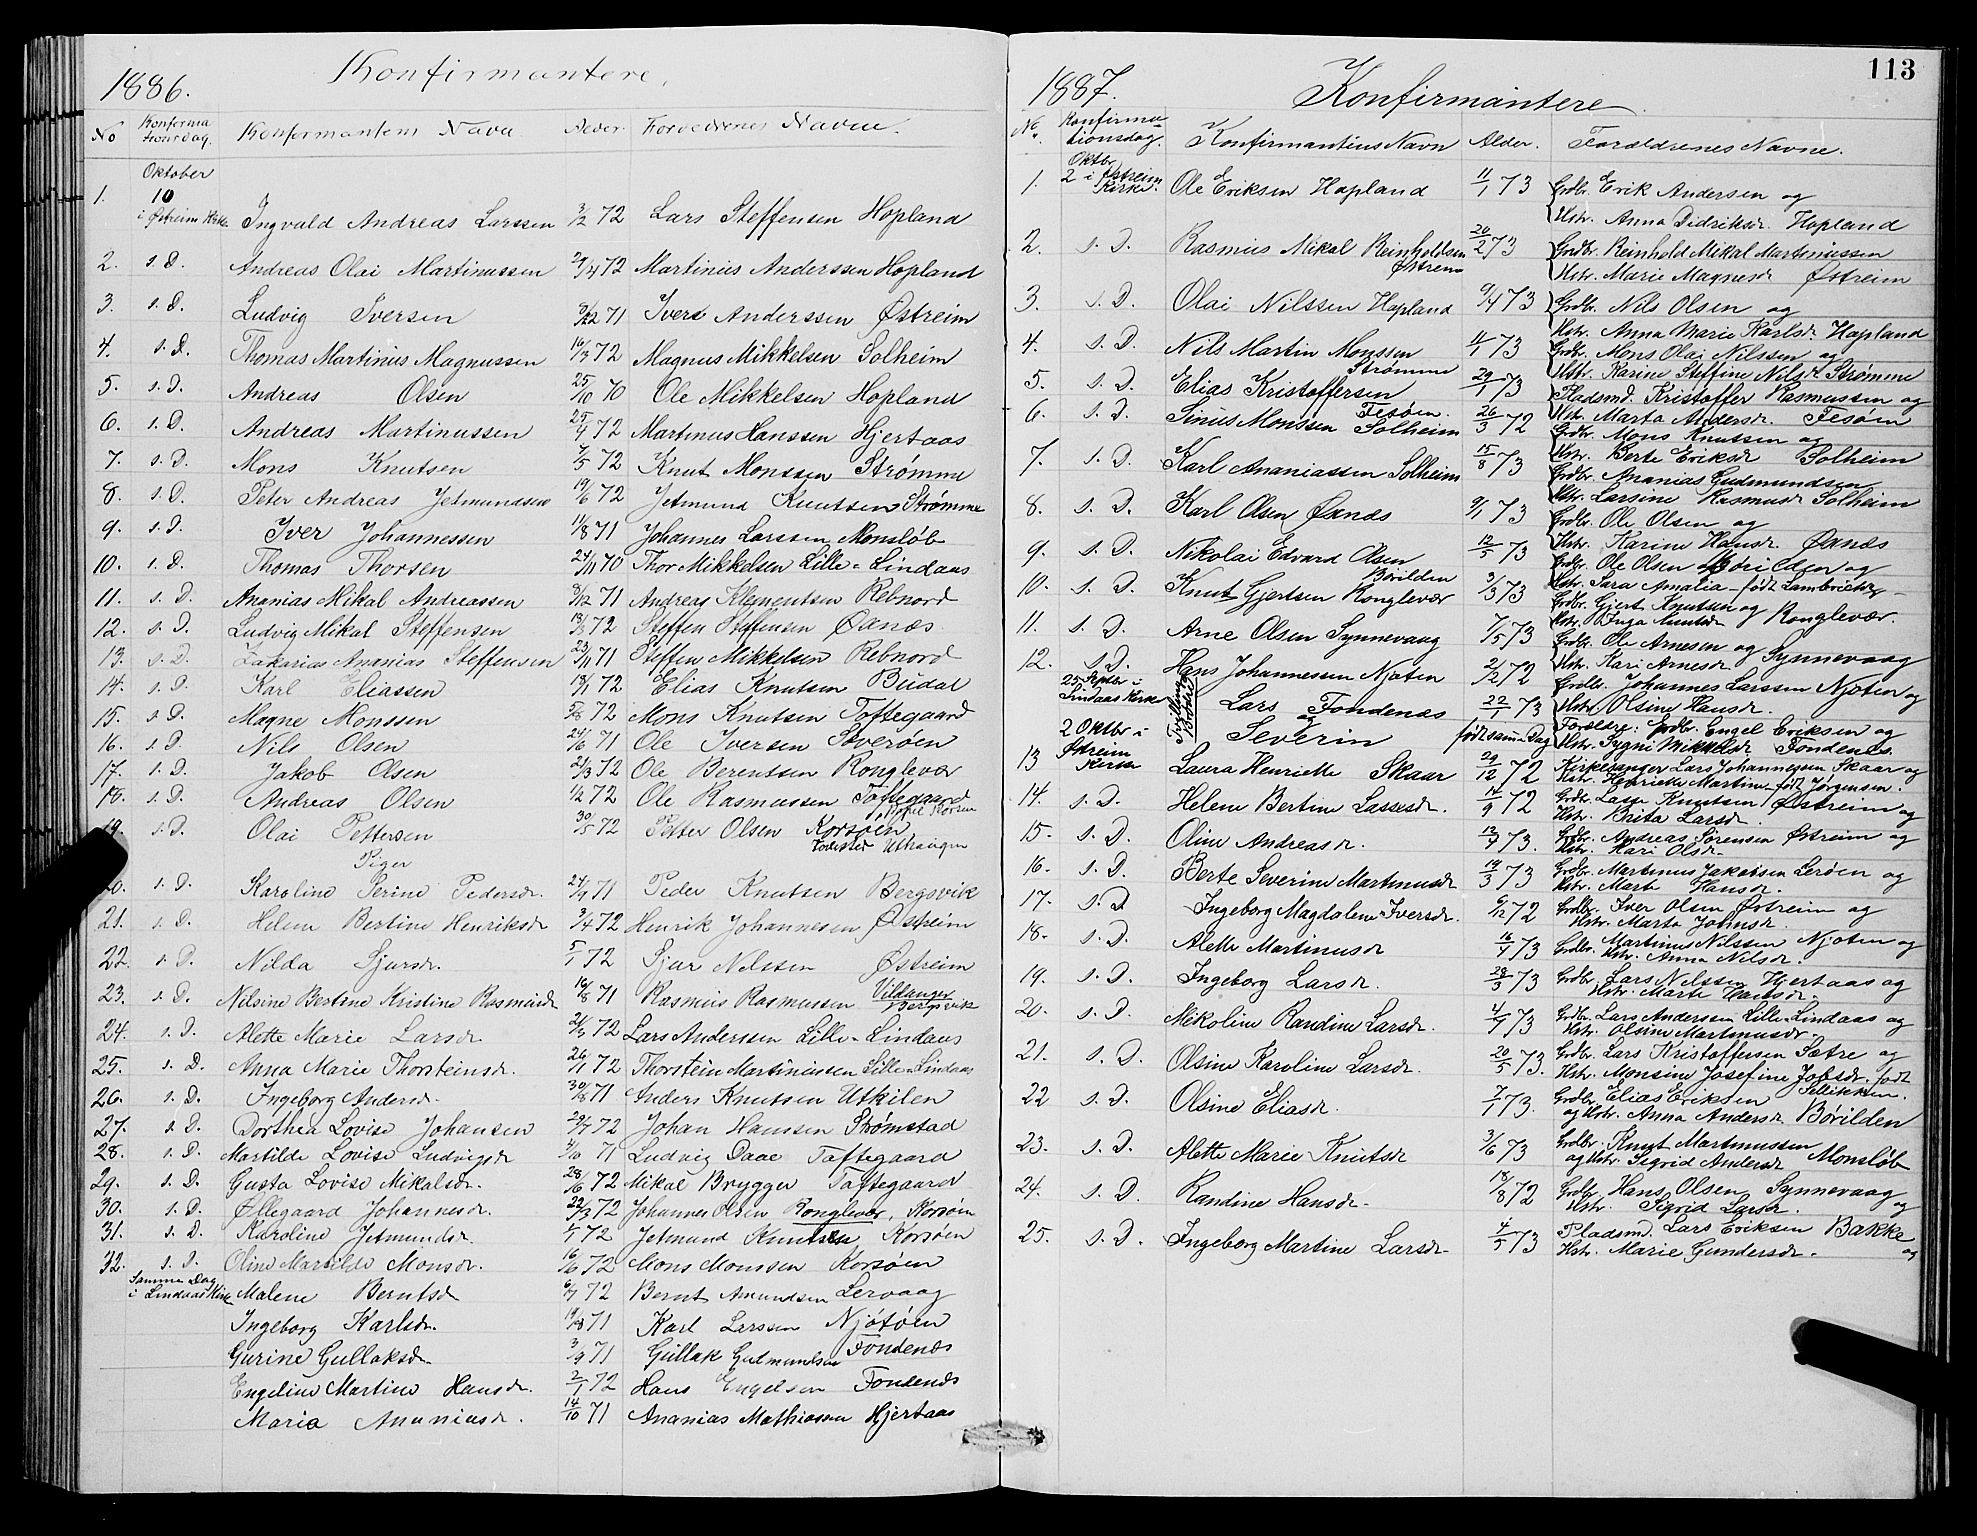 1886. Konfirmantere.
No Konfirmationsdag. Konfirmantens Navn Alder. Forældrenes Navne.
Oktober
1. 10 i Østreim Kirke. Ingvald Andreas Larssen 3/2 72 Lars Steffensen Hopland
2. s. D. Andreas Olai Martinussen 72 Martinus Anderssen Hopland
3. s. D. Ludvig Iversen 71 Iver Anderssen Østreim
4. s. D. Thomas Martinus Magnussen 16/3 72 Magnus Mikkelsen Solheim
5. s. D. Andreas Olsen 25/10 70 Ole Mikkelsen Hopland
6. s. D. Andreas Martinussen 25/4 72 Martinus Hanssen Hjertaas
7. s. D. Mons Knutsen 7/5 72 Knut Monssen Strømme
8. s. D. Peter Andreas Jetmundsen 19/6 72 Jetmund Knutsen Strømme
9. s. D. Iver Johannessen 11/8 71 Johannes Larssen Monsløb
10. s. D. Thomas Thorsen 24/11 70 Thor Mikkelsen Lille-Lindaas
11. s. D. Ananias Mikal Andreassen 9/12 71 Andreas Klementsen Rebnord
12. s. D. Ludvig Mikal Steffensen 72 Steffen Steffensen Øanæs
13. s. D. Zakarias Ananias Steffensen 23/11 71 Steffen Mikkelsen Rebnord
14. s. D. Karl Eliassen 18/1 72 Elias Knutsen Budal
15. s. D. Magne Monssen 5/8 72 Mons Knutsen Toftegaard
16. s. D. Nils Olsen 24/6 71 Ole Iversen Soverøen
17. s. D. Jakob Olsen 21/3 72 Ole Berentsen Ronglevær
18. s. D. Andreas Olsen 1/2 72 Ole Rasmussen Toftegaard
19. s. D. Olai Pettersen 30/5 72 Petter Olsen Korsøen
Fødested Uthaugen
Piger
20. s. D. Karoline Serine Pedersdr. 24/9 71 Peder Knutsen Bergsvik
21. s. D. Helene Bertine Henriksdr 3/4 72 Henrik Johannesen Østreim
22. s. D. Nilda Sjursdr. 5/1 72 Sjur Nilssen Østreim
23. s. D. Nilsine Bertine Kristine Rasmusdr 16/8 71 Rasmus Rasmussen Vildanger
Bergsvik
24. s. D. Alette Marie Larsdr 72 Lars Anderssen Lille-Lindaas
25. s. D. Anna Marie Thorsteinsdr. 26/1 72 Thorstein Martinussen Lille-Lindaas
26. s. D. Ingeborg Andersdr. 30/8 71 Anders Knutsen Utkilen
27. s. D. Dorthea Lovise Johansen 29/7 72 Johan Hanssen Strømstad
28. s. D. Martilde Lovise Ludvigsdr 71 Ludvig Daae Toftegaard
29. s. D. Gusta Lovise Mikalsdr. 28/6 72 Mikal Brygger Toftegaard
30. s. D. Øllegaard Johannesdr. 22/3 72 Johannes Olsen Ronglevær, Korsøen
31. s. D. Karoline Jetmundsdr. 72 Jetmund Knutsen Korsøen
32. s. D. Oline Martilde Monsdr. 16/6 72 Mons Monssen Korsøen
Samme Dag i Lindaas Kirke Malene Berntsdr 6/7 72 Bernt Amundsen Lervaag
Ingeborg Karlsdr. 71 Karl Larssen Njøtøen
Gurine Gullaksdr. 3/9 71 Gullak Gutmundsen Fondenæs
Engeline Martine Hansdr. 2/1 72 Hans Engelsen Fondenæs
Maria Ananiasdr. 14/10 71 Ananias Mathiassen Hjertaas
113
1887. Konfirmantere.
No. Konfirmationsdag. Konfirmantens Navn Alder. Forældrenes Navne.
1. Oktbr. 2 i Østreim Kirke. Ole Eriksen Hopland 11/1 73 Grdbr. Erik Andersen og
Hstr. Anna Didriksdr. Hopland
2. s. D. Rasmus Mikal Reinholdsen Østreim 20/2 73 Grdbr. Reinhold Mikal Martinussen
Hstr. Marie Magnesdr Østreim
3. s. D. Olai Nilssen Hopland 9/4 73 Grdbr. Nils Olsen og
Hstr. Anna Marie Karlsdr. Hopland
4. s. D. Nils Martin Monssen Strømme 73 Grdbr. Mons Olai Nilssen og
Hstr. Karine Steffine Nilsdr Strømme
5. s. D. Elias Kristoffersen Fesøen. 29/1 73 Pladsmd. Kristoffer Rasmussen og
Hstr. Marta Andersdr. Fesøen
6. s. D. Sinius Monssen Solheim 26/3 72 Grdbr. Mons Knutsen og
Hstr. Berte Eriksdr Solheim
7. s. D. Karl Ananiassen Solheim 15/8 73 Grdbr. Ananias Gudmundsen
Hstr. Larsine Rasmusdr Solheim
8. s. D. Karl Olsen Øanæs 9/1 73 Grdbr. Ole Olsen og
Hstr. Karine Hansdr. Øanæs
9. s. D. Nikolai Edvard Olsen Børilden 12/5 73 Grdbr. Ole Olsen Børilden og
Hstr. Sara Amalia født Lambrichts
10. s. D. Knut Gjertsen Ronglevær 3/3 73 Grdbr. Gjert Knutsen og
Hstr. Inga Knutsdr Ronglevær.
11. s. D. Arne Olsen Synnevaag 7/5 73 Grdbr. Ole Arnesen og
Hstr. Kari Arnesdr. Synnevaag
12. s. D. Hans Johannessen Njøten 2/12 72 Grdbr. Johannes Larssen Njøten og
Hstr. Olsine Hansdr.
25 Septbr i Lindaas Kirke Tvillinge Brødre Lars Fondenæs 22/1 73 Forældre: Grdbr. Engel Eriksen og
og Severin født samme Dag Hstr. Sygni Mikkelsdr Fondenæs
13 2 Oktbr i Østreim Kirke Laura Henriette Skaar 29/12 72 Kirkesanger Lars Johannessen Skaar og
Hstr. Henriette Martine født Jørgensen.
14. s. D. Helene Bertine Lassesdr. 14/9 72 Grdbr. Lasse Knutsen Østreim og
Hstr. Brita Larsdr.
15. s. D. Oline Andreasdr. 73. Grdbr. Andreas Sørensen Østreim og
Hstr. Kari Olsdr.
16. s. D. Berte Severine Martinusdr 19/3 73 Grdbr. Martinus Jakobsen Lerøen og
Hstr. Marte Hansdr.
17. s. D Ingeborg Magdalene Iversdr. 6/12 72 Grdbr. Iver Olsen Østreim og
Hstr. Marta Johnsdr.
18. s. D. Alette Martinusdr 16/4 73 Grdbr. Martinus Nilssen Njøten og
Hstr. Anna Nilsdr.
19. s. D. Ingeborg Larsdr. 28/3 73 Grdbr. Lars Nilssen Hjertaas og
Hstr. Marte Hansdr.
20. s. D. Nikoline Randine Larsdr. 73 Grdbr. Lars Anderssen Lille-Lindaas og
Hstr. Olsine Martinusdr
21. s. D. Olsine Karoline Larsdr. 20/5 73. Grdbr. Lars Kristoffersen Sætre og
Hstr. Monsine Josefine Jobsdr. født Sellikken.
22 s. D. Olsine Eliasdr. 7/1 73. Grdbr. Elias Eriksen
og Hstr. Anna Andersdr Børilden
23. s. D. Alette Marie Knutsdr 3/6 73 Grdbr. Knut Martinussen
og Hstr. Sigrid Andersdr Monsløb
24. s. D. Randine Hansdr. 18/8 72 Grdbr. Hans Olsen Synnevaag og
Hstr. Sigrid Larsdr.
25. s. D. Ingeborg Martine Larsdr. 4/5 73 Pladsmd. Lars Eriksen Bakke og
Hstr. Marie Gundersdr.